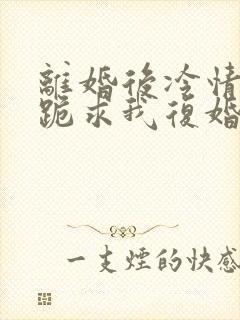 離婚後冷情
跪求我復婚
一支煙的快感